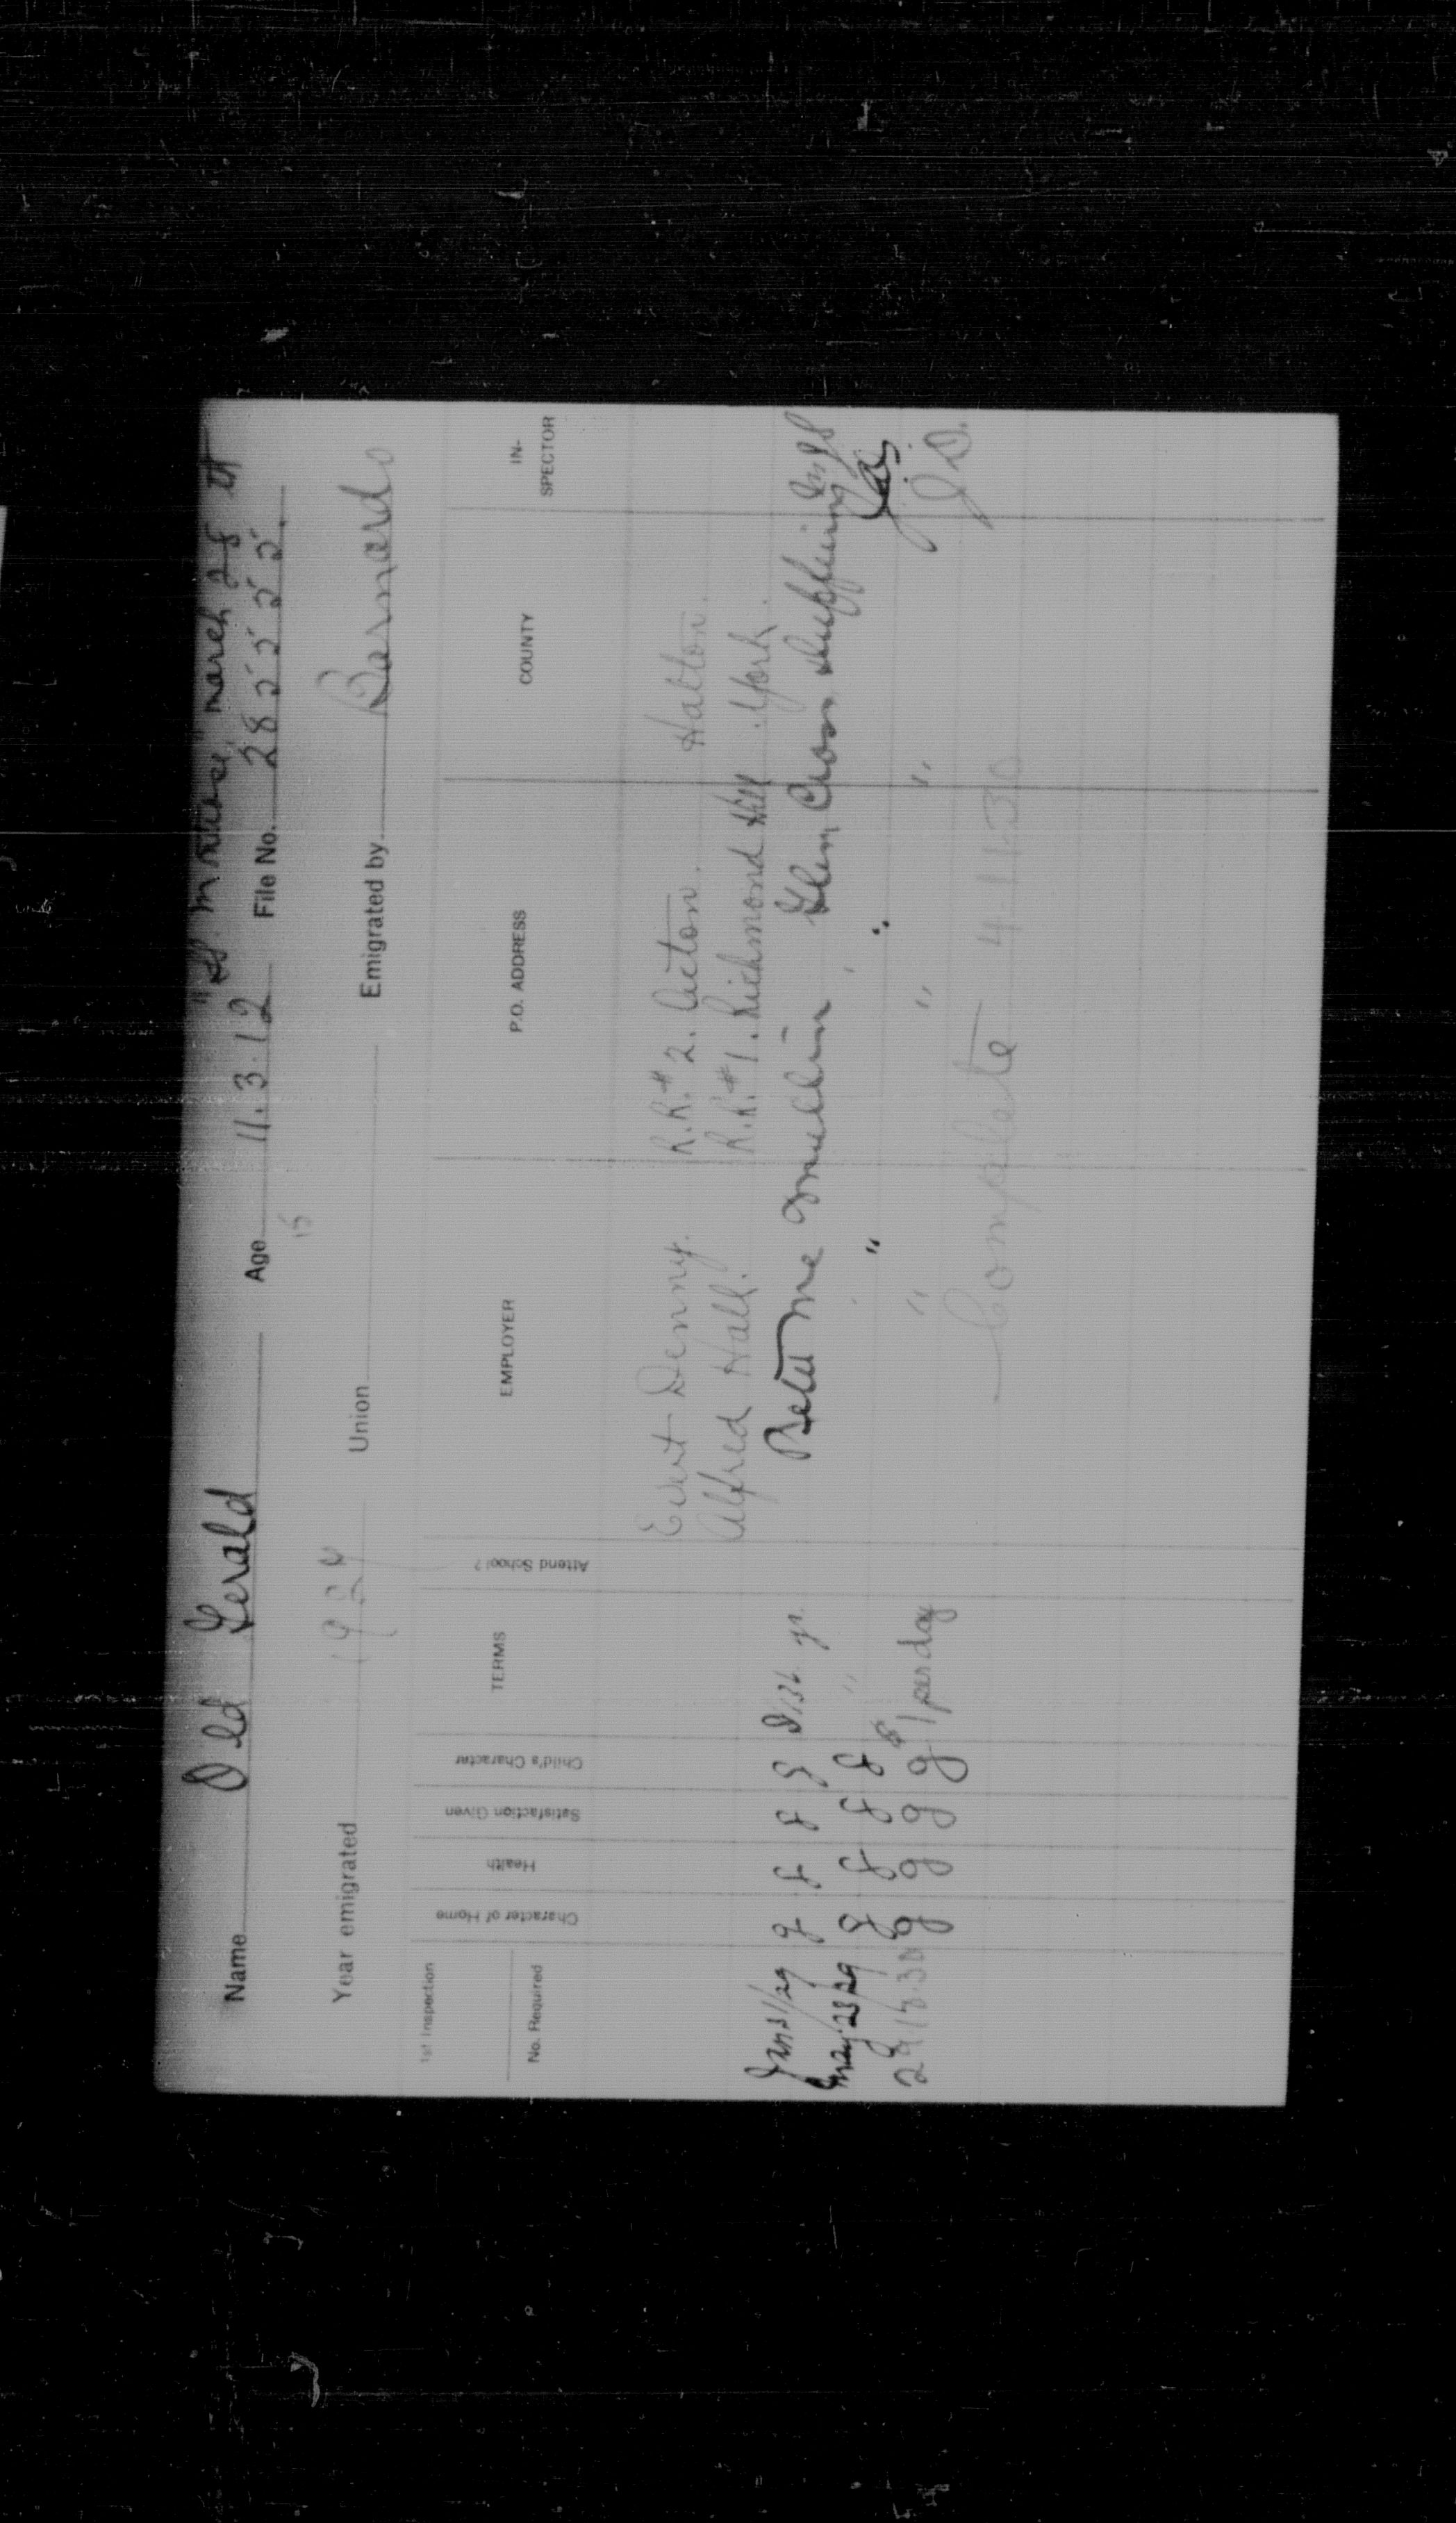 march 28 th
Name Old Gerald Age 11.3.12 File No. 285555
15
Year emigrated Union Emigrated by Barnardo
1st Inspection
No. Required
Character of Home
Health
Satisfaction Given
Child's Character
TERMS
Attend School?
EMPLOYER
P.O. ADDRESS
COUNTY
IN-
SPECTOR
Evert Denny. R.R.# 2. Acton. Halton.
Alfred Hall. R.R.# 1. Richmond Hill York.
Jan 31/29 g g g g yr. Glen Cross Dufferin
May 23/29 g g g g " " "
29 g g g g $1 per day " " " J.D.
Complete 4-11-30